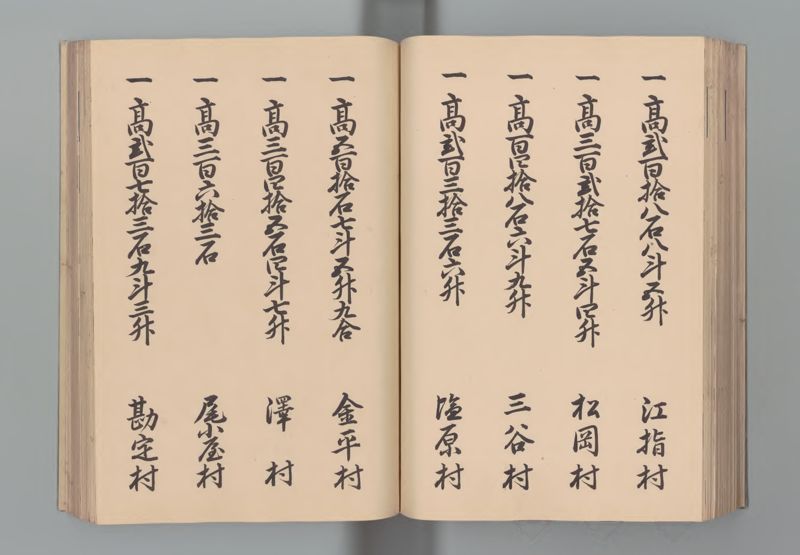 一 高弐百拾八石八斗五升 江指村
一 高三百弐拾七石五斗四升 松岡村
一 高百四拾八石六斗九升 三谷村
一 高弐百三拾三石六升 塩原村
一 高五百拾石七斗五升九合 金平村
一 高三百四拾五石四斗七升 澤村
一 高三百六拾三石 尾小屋村
一 高弐百七拾三石九斗三升 勘定村